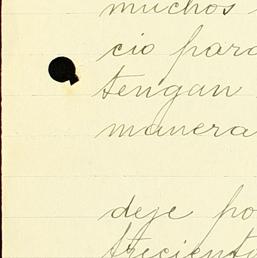 muchos
cio para
tengan
manera
deje po
trecient